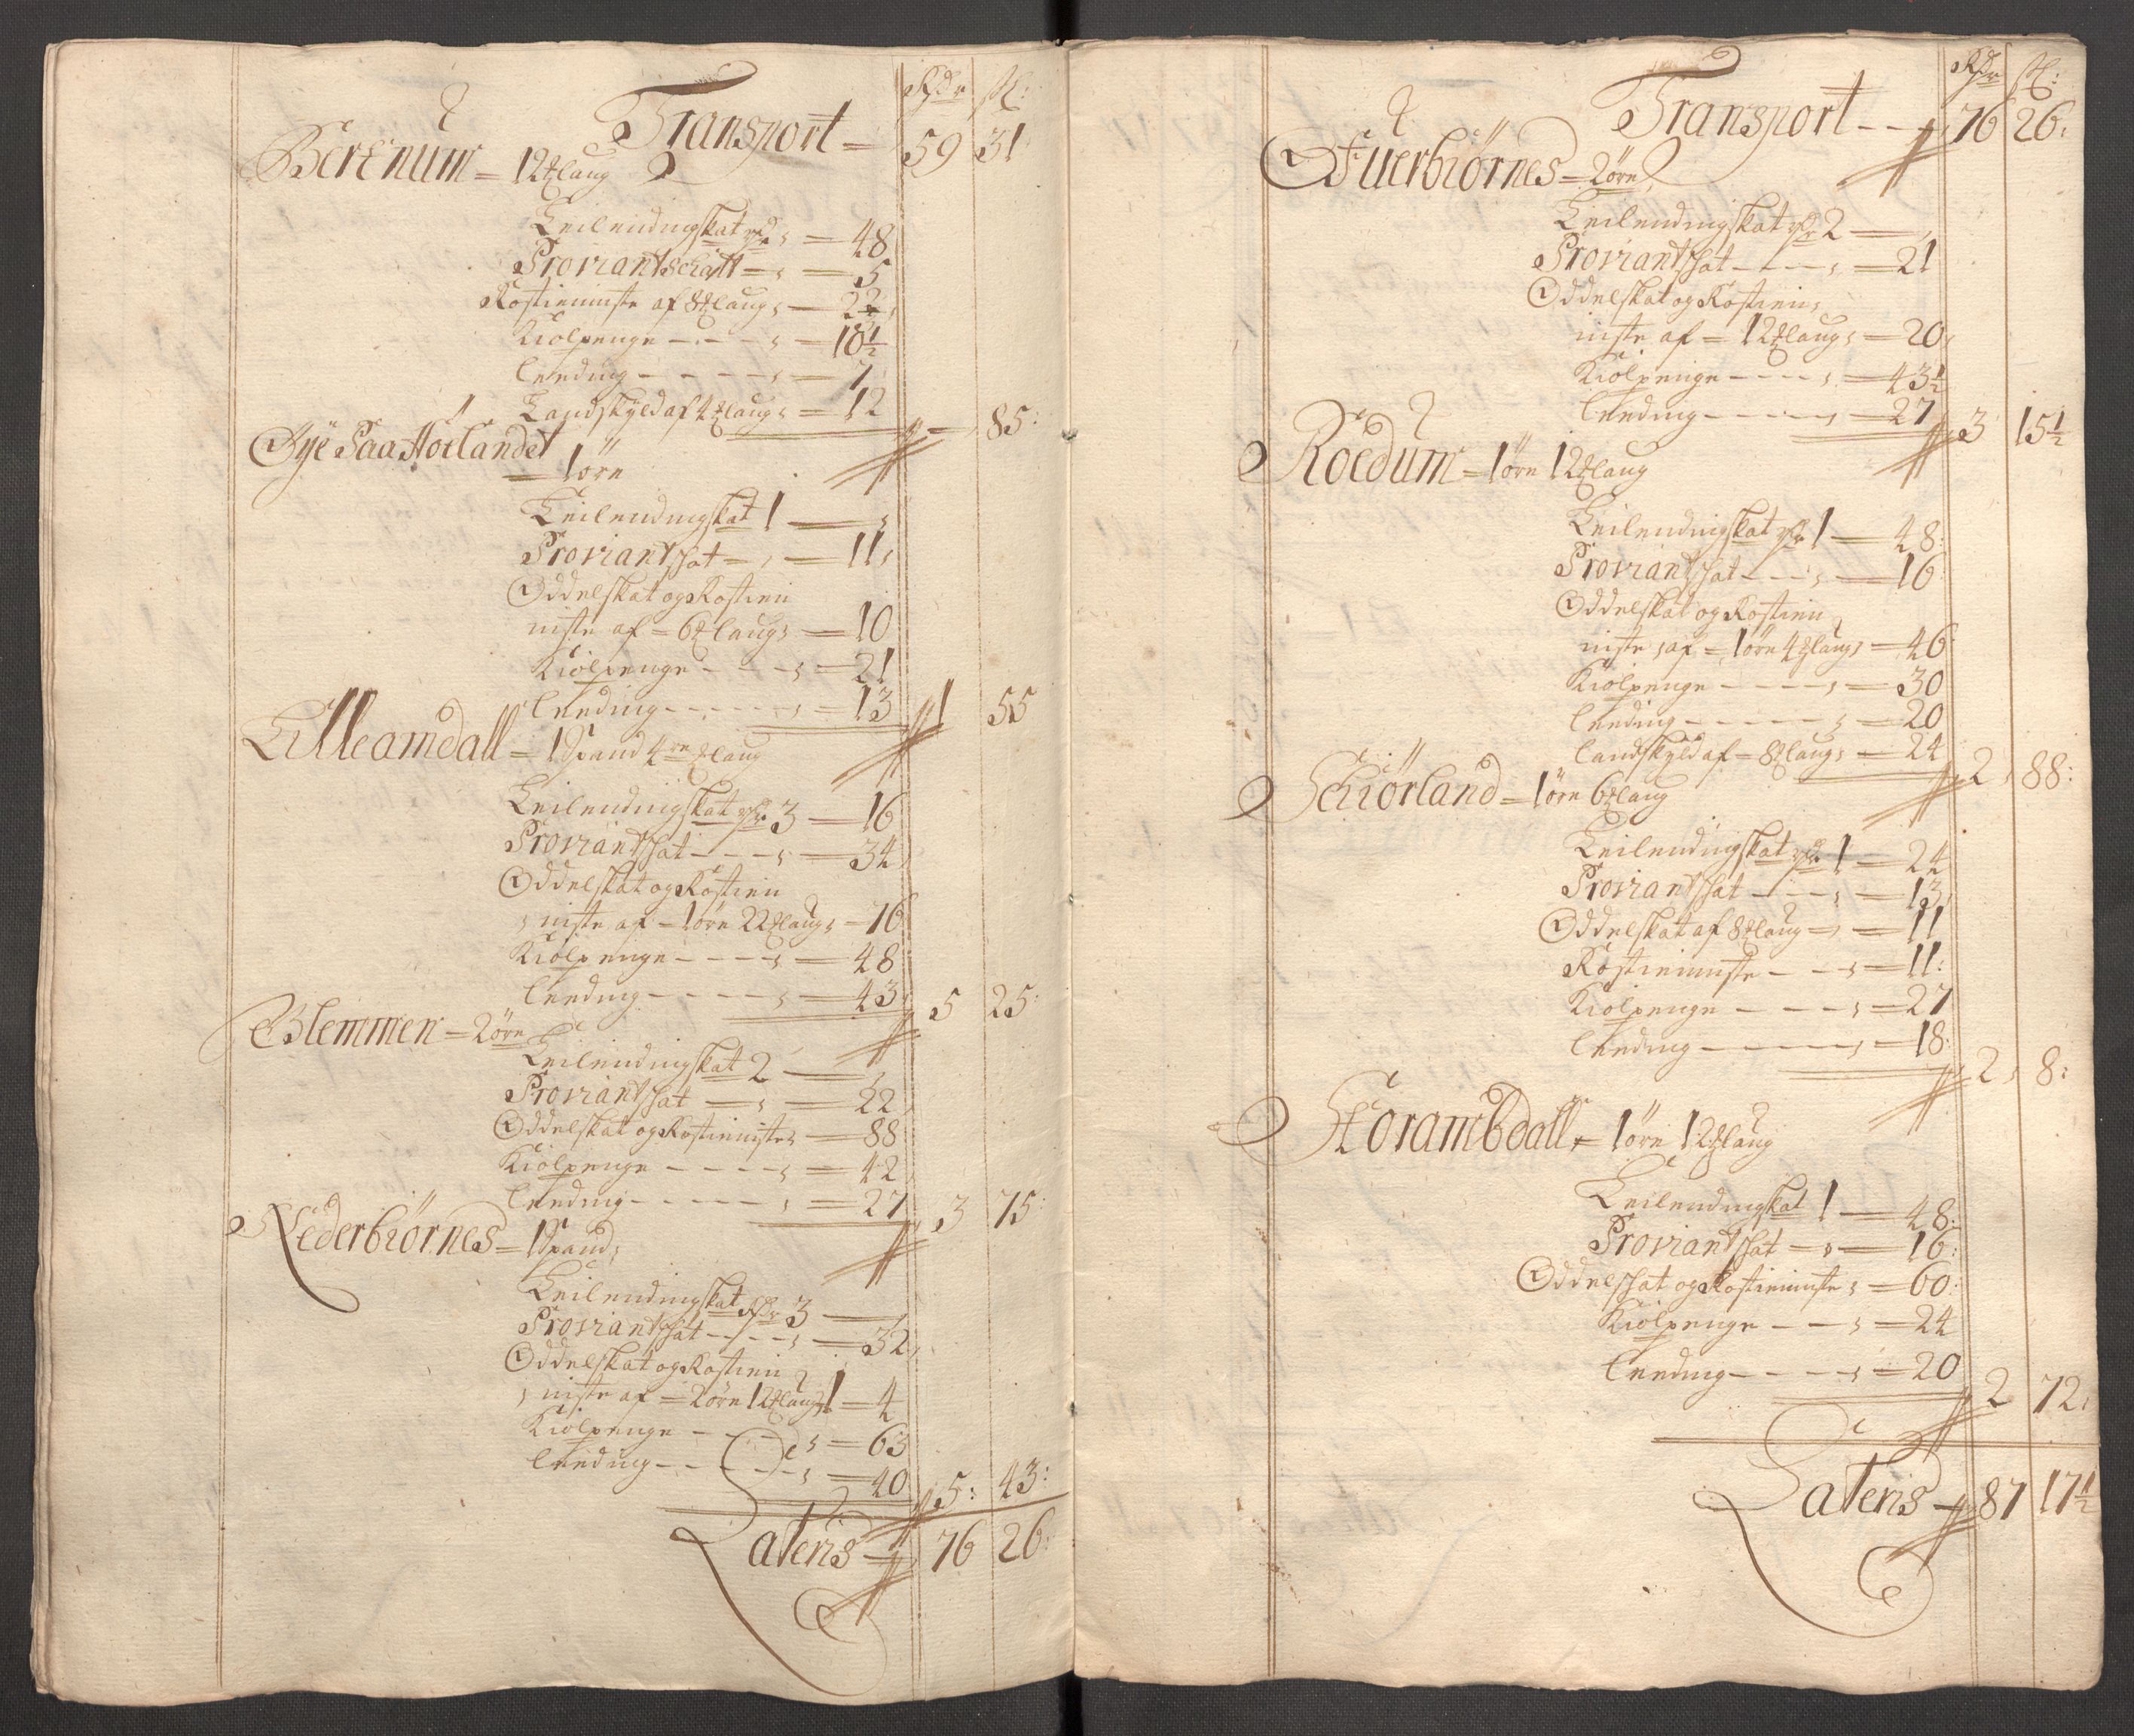 Rdr ß:
Transport = 59 31
Berënum = 12 ℔laug
Leilendingskat rdr , = 48
Proviantschatt = , = 5
Rostieniste af 8 ℔laug , = 22
Kiolpenge - - - , = 18½
Leeding - - - - , = 7
Landskyld af 4 ℔laug , = 12 - 85:
Öÿe Paa Höilandet
= 1 öre
Leilendingskat 1 - ,
Proviantskat - , = 11,
Oddelskat og Rostien
niste af = 6 ℔laug , = 10
Kiolpenge - - - , = 21
Leeding - - - - , = 13 1 55
Lilleamdall = 1 Spand 4re ℔laug
Leilendingskat rdr 3 - 16
Proviantskat - - - , = 34
Oddelskat og Rostien
, niste af = 1 öre 22 ℔laug , - 76
Kiolpenge - - - - , = 48
Leeding - - - - , = 43 5 25:
Glemmen = 2 öre
Leilendingskat 2 - ,
Proviantskat - , = 22
Oddelskat og Rostieniste , = 88
Kiolpenge - - - - , = 42
Leeding - - - - , = 27 3 75:
Nederbiörnes = 1 Spand ,
Leilendingskat Rdr 3 - ,
Proviantskat - - - , = 32,
Oddelskat og Rostien
, niste af = 2 öre 12 ℔laug , 1 - 4
Kiolpenge - - , = 63
Leeding - - - - , = 40 5: 43:
Latens - 76 26:
Rdr ß:
Transport - - - 76 26:
Öfuerbiörnes = 2 öre ,
Leilendingskat rdr 2 - ,
Proviantskat - - - , = 21
Oddelskat og Rostien ,
niste af = 12 ℔laug , = 20,
Kiolpenge - - - - , = 43½
Leeding - - - - , = 27 3 15½
Röedum = 1 öre 12 ℔laug
Leilendingskat rdr 1 - 48:
Proviantskat - - - , = 16
Oddelskat og Rostien
niste , af = 1 öre 4 ℔laug , = 46
Kiolpenge - - - - , = 30
Leeding - - - - - , = 20
Landskyld af = 8 ℔laug , = 24 2 , 88:
Schiörland = 1 öre 6 ℔laug
Leilendingskat rdr 1 = 24
Proviantskat - - - , = 13,
Oddelskat af 8 ℔laug = , = 11
Rostieniste - - , = 11:
Kiolpenge - - - - , = 27
Leeding - - - - - , = 18: 2 , 8:
Storambdall = 1 öre 12 ℔laug
Leilendingskat 1 - 48:
Proviantskat - , = 16:
Oddelskat og Rostieniste , = 60:
Kiolpenge - - - , = 24
Leeding - - - - , = 20 2 72,
Latens - 87 17½